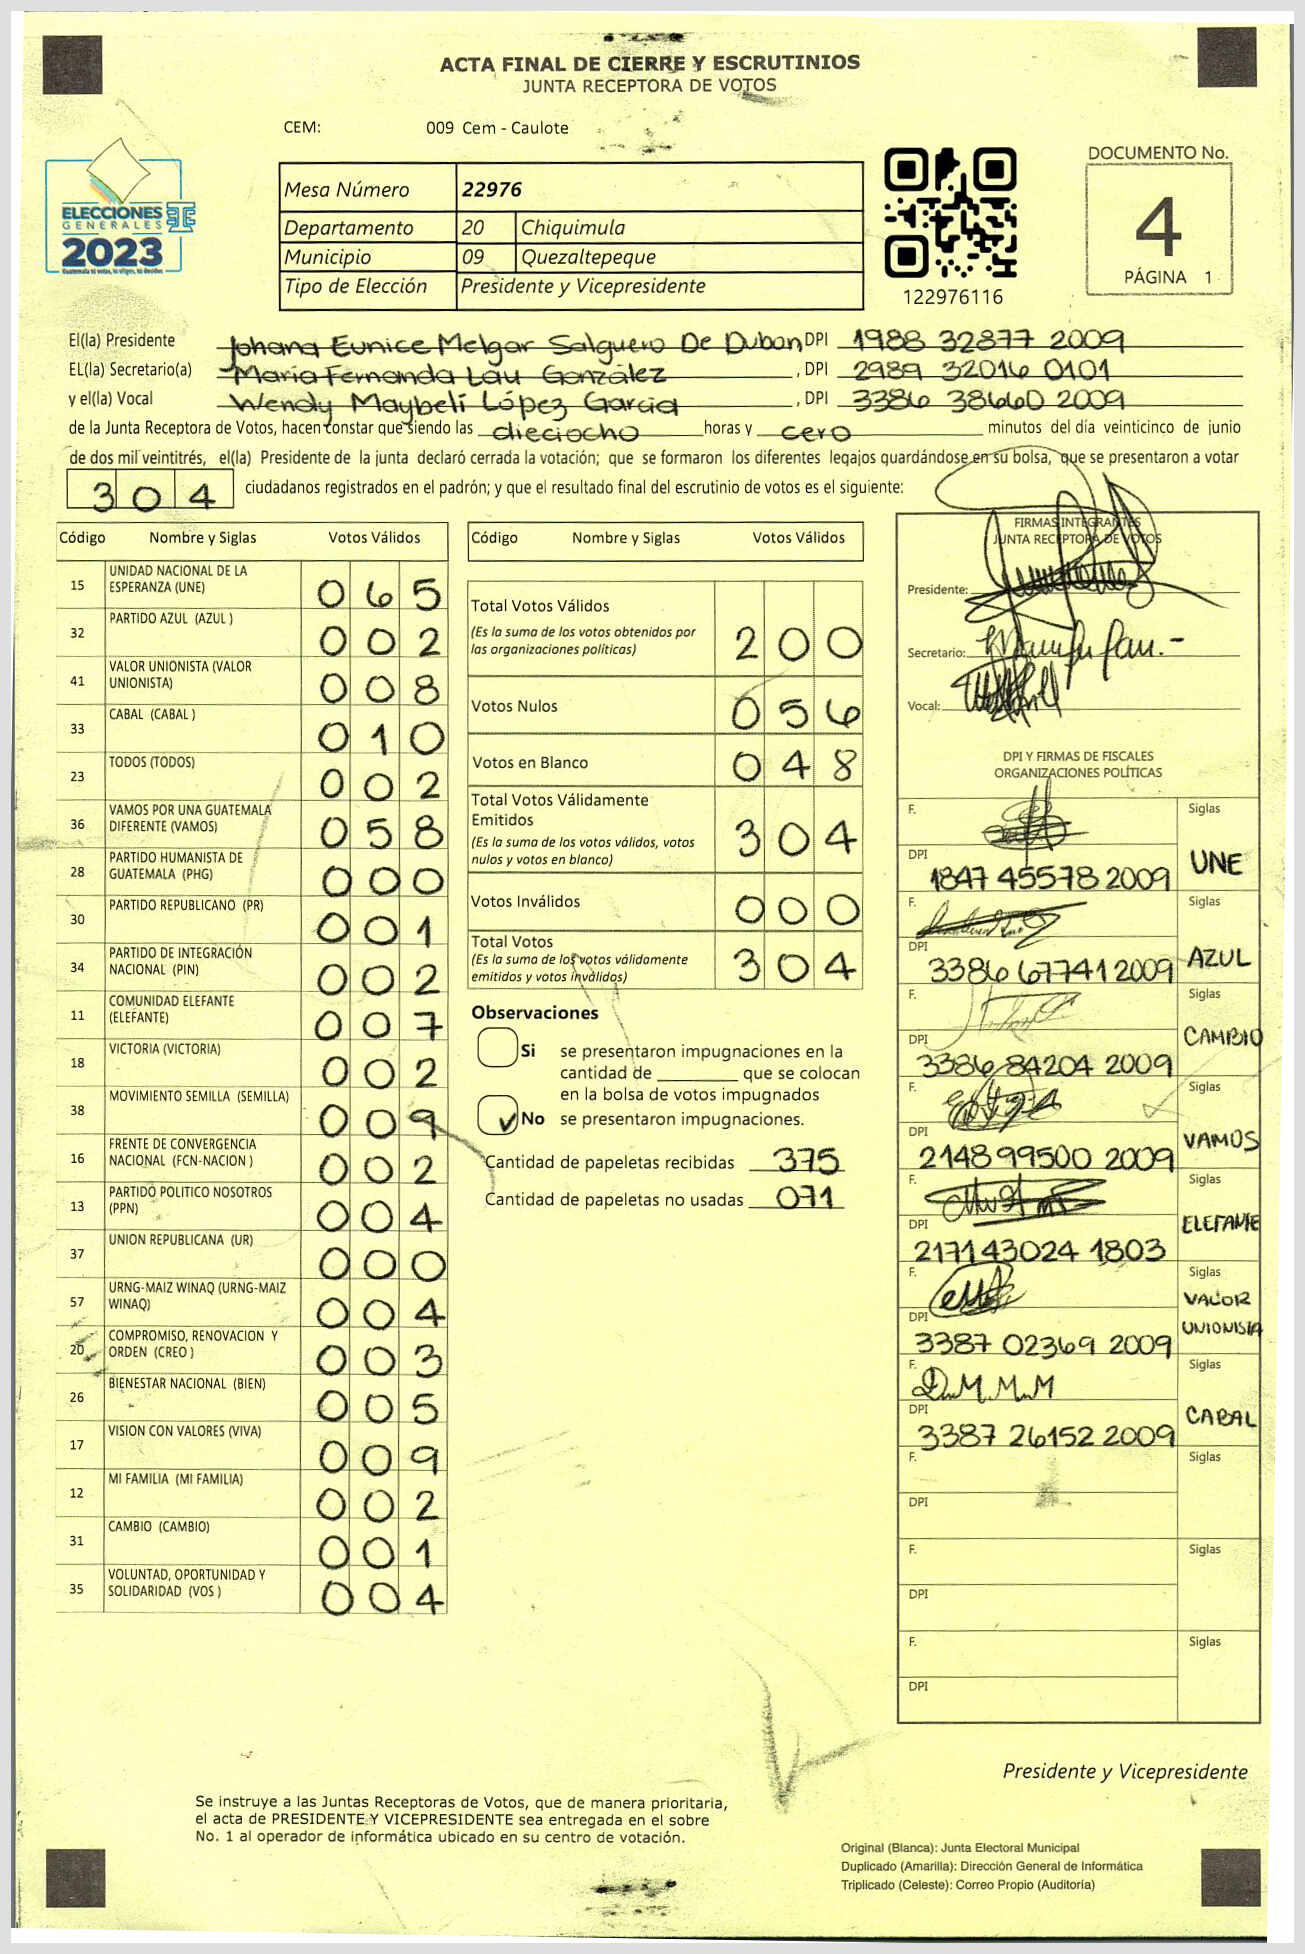 ACTA FINAL DE CIERRE Y ESCRUTINIOS
JUNTA RECEPTORA DE VOTOS
CEM: 009 Cem - Caulote
ELECCIONES
GENERALES
2023
Mesa Número 22976
Departamento 20 Chiquimula
Municipio 09 Quezaltepeque
Tipo de Elección Presidente y Vicepresidente
122976116
DOCUMENTO No.
4
PÁGINA 1
El(la) Presidente Johana Eunice Melgar Salguero De Dubon DPI 1988 32877 2009
EL(la) Secretario(a) María Fernanda Lau González , DPI 2989 32016 0101
y el(la) Vocal Wendy Maybelí López Garcia , DPI 3386 38660 2009
de la Junta Receptora de Votos, hacen constar que siendo las dieciocho horas y cero minutos del día veinticinco de junio
de dos mil veintitrés, el(la) Presidente de la junta declaró cerrada la votación; que se formaron los diferentes legajos guardándose en su bolsa, que se presentaron a votar
304 ciudadanos registrados en el padrón; y que el resultado final del escrutinio de votos es el siguiente:
Código Nombre y Siglas Votos Válidos
15 UNIDAD NACIONAL DE LA ESPERANZA (UNE) 065
32 PARTIDO AZUL (AZUL ) 002
41 VALOR UNIONISTA (VALOR UNIONISTA) 008
33 CABAL (CABAL ) 010
23 TODOS (TODOS) 002
36 VAMOS POR UNA GUATEMALA DIFERENTE (VAMOS) 058
28 PARTIDO HUMANISTA DE GUATEMALA (PHG) 000
30 PARTIDO REPUBLICANO (PR) 001
34 PARTIDO DE INTEGRACIÓN NACIONAL (PIN) 002
11 COMUNIDAD ELEFANTE (ELEFANTE) 007
18 VICTORIA (VICTORIA) 002
38 MOVIMIENTO SEMILLA (SEMILLA) 009
16 FRENTE DE CONVERGENCIA NACIONAL (FCN-NACION ) 002
13 PARTIDO POLITICO NOSOTROS (PPN) 004
37 UNION REPUBLICANA (UR) 000
57 URNG-MAIZ WINAQ (URNG-MAIZ WINAQ) 004
20 COMPROMISO, RENOVACION Y ORDEN (CREO ) 003
26 BIENESTAR NACIONAL (BIEN) 005
17 VISION CON VALORES (VIVA) 009
12 MI FAMILIA (MI FAMILIA) 002
31 CAMBIO (CAMBIO) 001
35 VOLUNTAD, OPORTUNIDAD Y SOLIDARIDAD (VOS ) 004
Código Nombre y Siglas Votos Válidos
Total Votos Válidos 200
(Es la suma de los votos obtenidos por
las organizaciones políticas)
Votos Nulos 056
Votos en Blanco 048
Total Votos Válidamente
Emitidos 304
(Es la suma de los votos válidos, votos
nulos y votos en blanco)
Votos Inválidos 000
Total Votos 304
(Es la suma de los votos válidamente
emitidos y votos inválidos)
Observaciones
Si se presentaron impugnaciones en la
cantidad de ________ que se colocan
en la bolsa de votos impugnados
No se presentaron impugnaciones.
Cantidad de papeletas recibidas 375
Cantidad de papeletas no usadas 071
FIRMAS INTEGRANTES
JUNTA RECEPTORA DE VOTOS
Presidente:
Secretario:
Vocal:
DPI Y FIRMAS DE FISCALES
ORGANIZACIONES POLÍTICAS
F. Siglas
DPI 1847 45578 2009 UNE
F. Siglas
DPI 3386 67741 2009 AZUL
F. Siglas
DPI 3386 84204 2009 CAMBIO
F. Siglas
DPI 2148 99500 2009 VAMOS
F. Siglas
DPI 2171 43024 1803 ELEFANTE
F. Siglas
DPI 3387 02369 2009 VALOR UNIONISTA
F. Siglas
DPI 3387 26152 2009 CABAL
F. Siglas
DPI
F. Siglas
DPI
F. Siglas
DPI
Presidente y Vicepresidente
Se instruye a las Juntas Receptoras de Votos, que de manera prioritaria,
el acta de PRESIDENTE Y VICEPRESIDENTE sea entregada en el sobre
No. 1 al operador de informática ubicado en su centro de votación.
Original (Blanca): Junta Electoral Municipal
Duplicado (Amarilla): Dirección General de Informática
Triplicado (Celeste): Correo Propio (Auditoría)